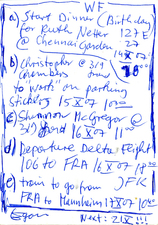 WF
a) Start Dinner (Birthday
for Ruth Netter 127 E
@ Chennai Garden 27
14 X 07
b) Christopher @ 319
Chambers
to "work" on parking
sticker 15 X 07 10:00
c) Shannon McGregor @
319 16 X 07 11:00
d) Departure Delta Flight
106 to FRA 16 X 07
e) train to go from JFK
FRA to Mannheim 17 X 07
Next: 21 X !!!